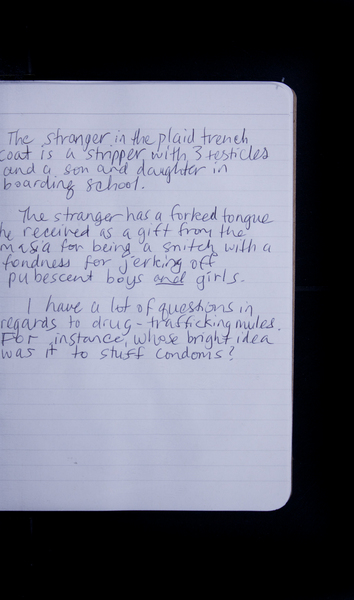 The stranger in the plaid trench
coat is a stripper with 3 testicles
and a son and daughter in
boarding school.
The stranger has a forked tongue
he received as a gift from the
mafia for being a snitch with a
fondness for jerking off
pubescent boys and girls.
I have a lot of questions in
regards to drug-trafficking mules.
For instance, whose bright idea
was it to stuff condoms?